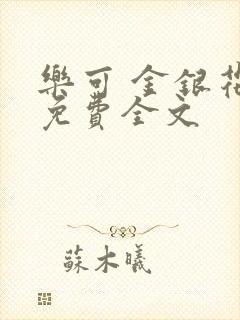 樂可 金銀花
免費全文
蘇木曦